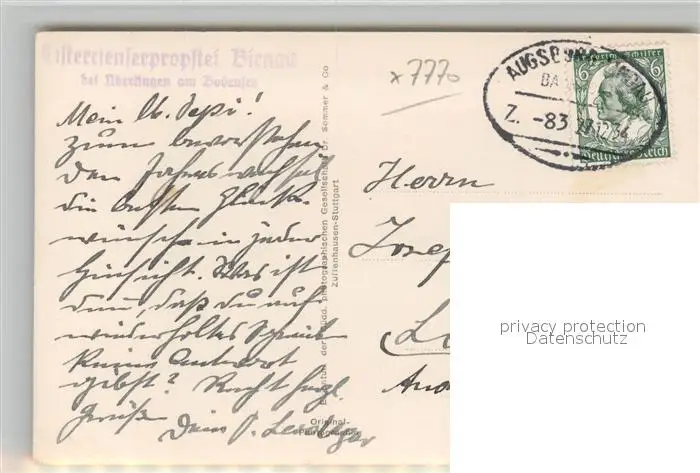 Cistercienserpropstei Birnau
bei Überlingen am Bodensee
Mein lb. Sepi!
Zum bevorstehen
den Jahreswechsel
die besten Glück-
wünsche in jeder
Hinsicht. Was ist
denn, daß du auf
wiederholtes Schreiben
keine Antwort
gibst? Recht herzl.
Grüße
Dein P.
x 7770
AUGSBURG
BA
Z. -83
29.12.34
Friedrich Schiller
6 6
Deutsches Reich
Herrn
Josep
L
Original-
Photographie
der Südd. photographischen Gesellschaft Dr. Sommer & Co
Zuffenhausen-Stuttgart
privacy protection
Datenschutz